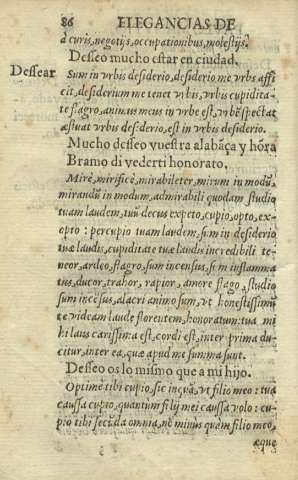 86 ELEGANCIAS DE
à curis, negotijs, occupationibus, molestijs.
Desseo mucho estar en ciudad.
Dessear
Sum in vrbis desiderio, desiderio me vrbs affi
cit, desiderium me tenet vrbis, vrbis cupidita-
te flagro, animus meus in vrbe est, vrbē spectat
æstuat vrbis desiderio, est in vrbis desiderio.
Mucho desseo vuestra alabãça y hõra
Bramo di vederti honorato.
Mirè, mirificè, mirabileter, mirum in modũ,
mirandũ in modum, admirabili quodam studio
tuam laudem, tuũ decus expeto, cupio, opto, ex-
opto: percupio tuam laudem, sum in desiderio
tuæ laudis, cupiditate tuæ laudis incredibili te-
neor, ardeo, flagro, sum incensus, sum inflamma
tus, ducor, trahor, rapior, amore flago, studio
sum incẽsus, alacri animo sum, vt honestissimũ
te videam laude florentem, honoratum: tua mi
hi laus carissima est, cordi est, inter prima du
citur, inter ea, quæ apud me summa sunt.
Desseo os lo mismo que a mi hijo.
Optimè tibi cupio, sic inquã, vt filio meo: tua
caussa cupio, quantum filij mei caussa volo: cu-
pio tibi secũda omnia, nõ minus quàm filio meo,
æque